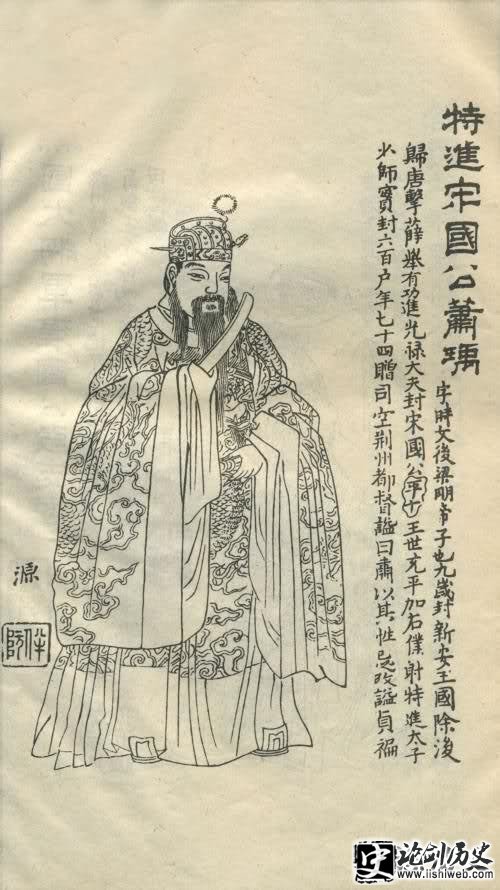 特進宋國公蕭瑀
字時文後梁明帝子也九歲封新安王國除後
歸唐擊薛舉有功進光禄大夫封宋國公年十王世充平加右僕射特進太子
少師實封六百户年七十四贈司空荆州都督謚曰肅以其性忌改謚貞褊
源
史 论剑历史
www.lishiweb.com